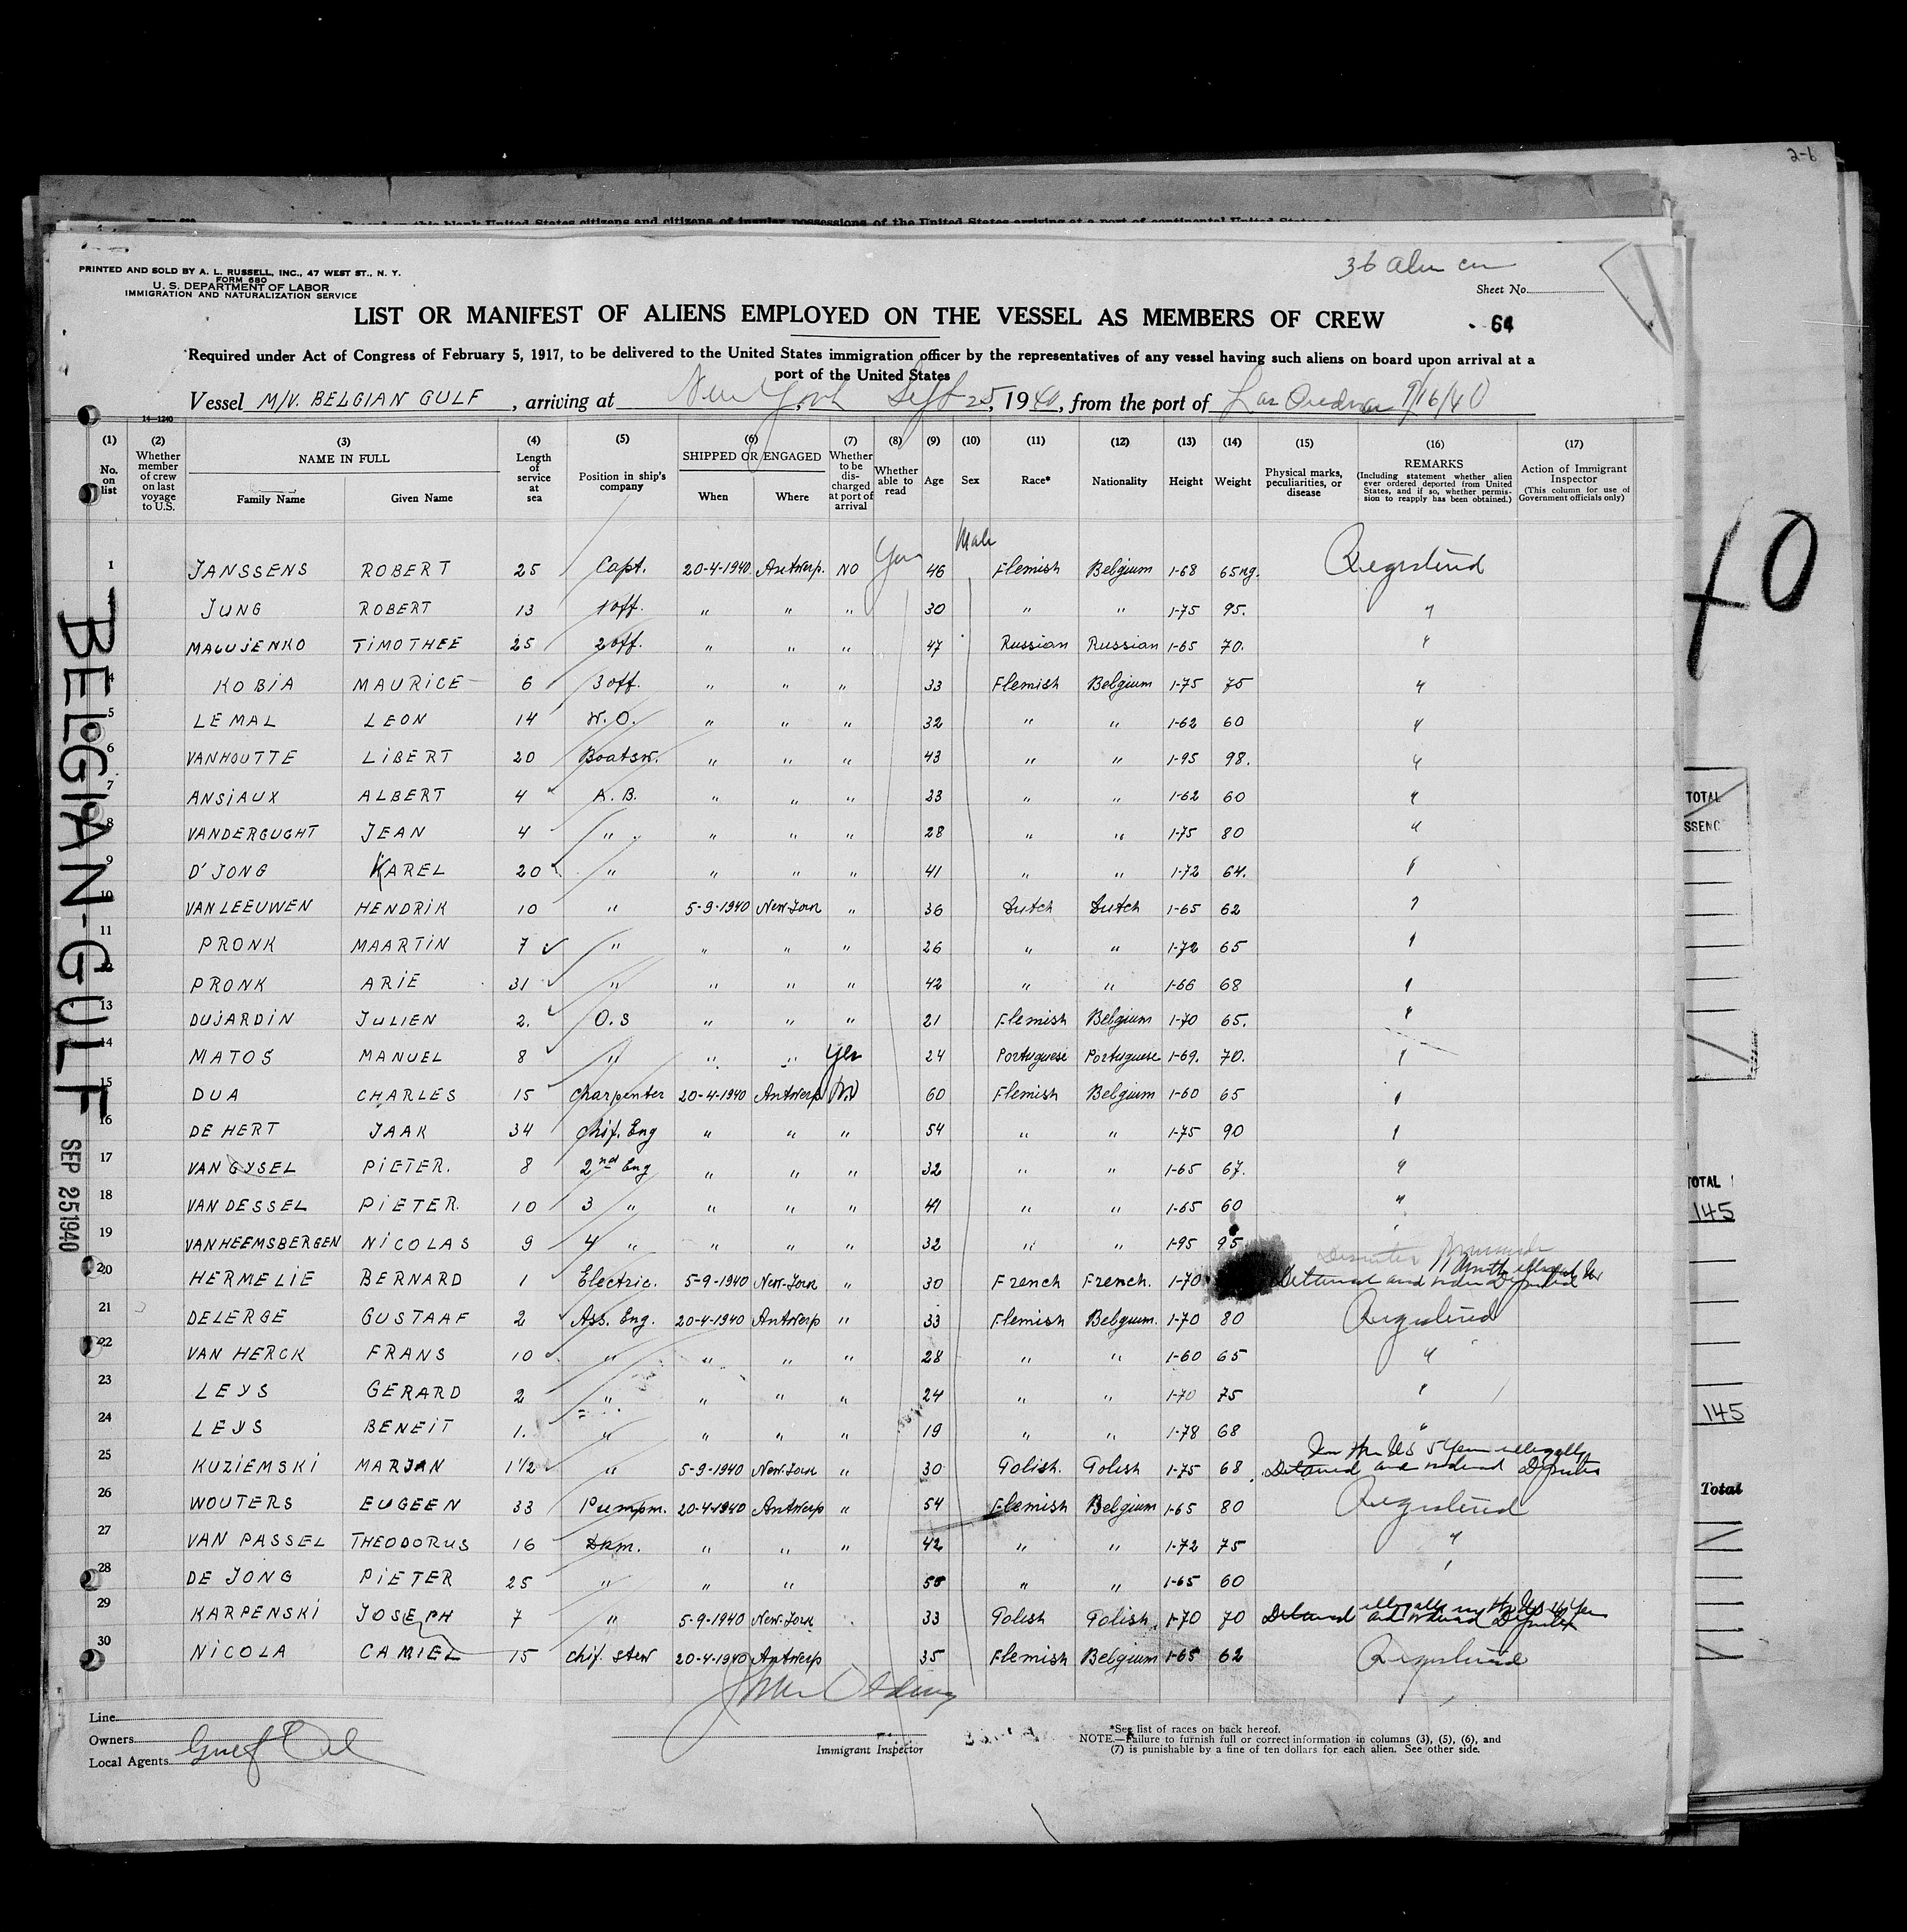 2-6
PRINTED AND SOLD BY A. L. RUSSELL, INC., 47 WEST ST., N. Y.
FORM 680
U. S. DEPARTMENT OF LABOR
IMMIGRATION AND NATURALIZATION SERVICE
36 alien
Sheet No.
LIST OR MANIFEST OF ALIENS EMPLOYED ON THE VESSEL AS MEMBERS OF CREW
64
Required under Act of Congress of February 5, 1917, to be delivered to the United States immigration officer by the representatives of any vessel having such aliens on board upon arrival at a
port of the United States
Vessel M/V. BELGIAN GULF, arriving at New York Sept 25, 1940, from the port of Las 9/16/40
14—1240
(1) (2) (3) (4) (5) (6) (7) (8) (9) (10) (11) (12) (13) (14) (15) (16) (17)
No. on list Whether member of crew on last voyage to U.S. NAME IN FULL Family Name Given Name Length of service at sea Position in ship's company SHIPPED OR ENGAGED When Where Whether to be discharged at port of arrival Whether able to read Age Sex Race* Nationality Height Weight Physical marks, peculiarities, or disease REMARKS (Including statement whether alien ever ordered deported from United States, and if so, whether permission to reapply has been obtained.) Action of Immigrant Inspector (This column for use of Government officials only)
1 JANSSENS ROBERT 25 Capt. 20-4-1940 Antwerp. NO Yes 46 Male Flemish Belgium 1-68 65 Registered
JUNG ROBERT 13 1 off. " " " 30 " " 1-75 95. "
MALUJENKO TIMOTHEE 25 2 off. " " " 47 Russian Russian 1-65 70. "
4 KOBIA MAURICE 6 3 off. " " " 33 Flemish Belgium 1-75 75 "
5 LEMAL LEON 14 W.O. " " " 32 " " 1-62 60 "
6 VANHOUTTE LIBERT 20 Boatsw. " " " 43 " " 1-95 98. "
7 ANSIAUX ALBERT 4 A.B. " " " 23 " " 1-62 60 "
8 VANDERGUGHT JEAN 4 " " " " 28 " " 1-75 80 "
9 D'JONG KAREL 20 " " " " 41 " " 1-72 64. "
10 VAN LEEUWEN HENDRIK 10 " 5-9-1940 New-York " 36 Dutch Dutch 1-65 62 "
11 PRONK MAARTIN 7 " " " " 26 " " 1-72 65 "
12 PRONK ARIE 31 " " " " 42 " " 1-66 68 "
13 DUJARDIN JULIEN 2. O.S " " " 21 Flemish Belgium 1-70 65. "
14 MATOS MANUEL 8 " " " Yes 24 Portuguese Portuguese 1-69. 70. "
15 DUA CHARLES 15 Charpenter 20-4-1940 Antwerp No 60 Flemish Belgium 1-60 65 "
16 DE HERT JAAK 34 Chif. Eng " " " 54 " " 1-75 90 "
17 VAN GYSEL PIETER. 8 2nd Eng " " " 32 " " 1-65 67. "
18 VAN DESSEL PIETER. 10 3 " " " " 41 " " 1-65 60 "
19 VANHEEMSBERGEN NICOLAS 9 4 " " " " 32 " " 1-95 95
20 HERMELIE BERNARD 1 Electric. 5-9-1940 New-York " 30 French French. 1-70 Detained and
21 DELERGE GUSTAAF 2 Ass. Eng. 20-4-1940 Antwerp " 33 Flemish Belgium. 1-70 80 Registered
22 VAN HERCK FRANS 10 " " " " 28 " " 1-60 65 "
23 LEYS GERARD 2 " " " " 24 " " 1-70 75 "
24 LEYS BENEIT 1. " " " " 19 " " 1-78 68 "
In the US 5 Years illegally
25 KUZIEMSKI MARJAN 1 1/2 " 5-9-1940 New-York " 30 Polish. Polish 1-75 68 Detained and ordered
26 WOUTERS EUGEEN 33 Pumpm. 20-4-1940 Antwerp " 54 Flemish Belgium 1-65 80 Registered
27 VAN PASSEL THEODORUS 16 Dkm. " " " 42 " " 1-72 75 "
28 DE JONG PIETER 25 " " " " " 1-65 60 "
29 KARPENSKI JOSEPH 7 " 5-9-1940 New-York 33 Polish Polish 1-70 70 Detained and ordered
30 NICOLA CAMIEL 15 Chif. Stew 20-4-1940 Antwerp 35 Flemish Belgium 1-65 62 Registered
Line
Owners
Local Agents Gulf Oil
Immigrant Inspector
*See list of races on back hereof.
NOTE.—Failure to furnish full or correct information in columns (3), (5), (6), and
(7) is punishable by a fine of ten dollars for each alien. See other side.
BELGIAN-GULF
SEP 25 1940
TOTAL
SSENG
TOTAL
145
145
Total